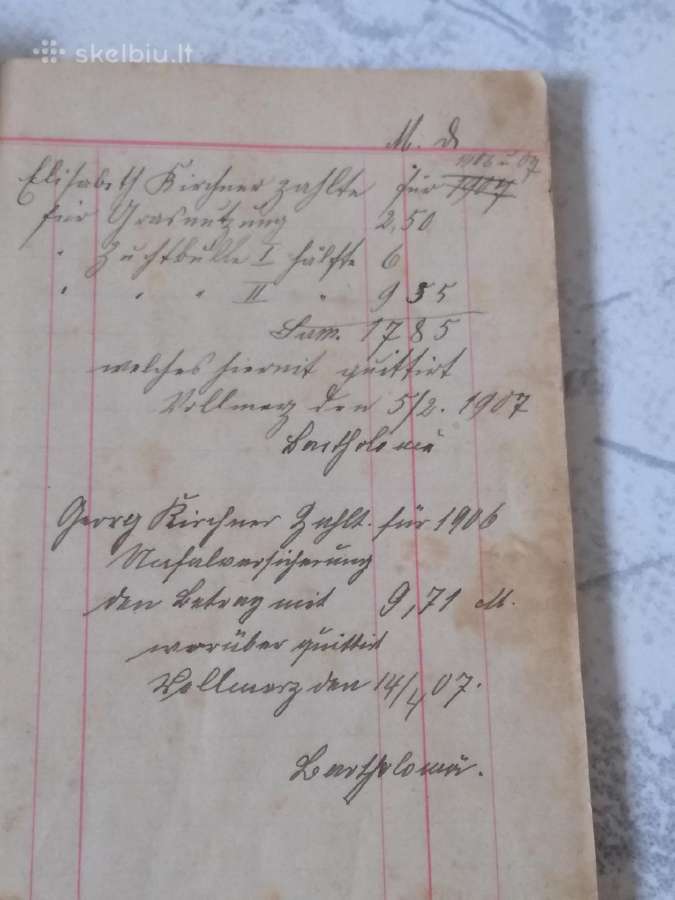 skelbiu.lt
M. ₰
1906 u 07
Elisabeth Kirchner zahlte für 1907
für Grasnutzung 2,50
" Zuchtbulle I hälfte 6
" " " II " 9 35
Sum. 17 85
welches hiermit quittirt
Vollmerz den 5/2. 1907
Bartholomä
Georg Kirchner Zahlt. für 1906
Unfalversicherung
den Betrag mit 9,71 M.
worüber quittirt
Vollmerz den 14/4 07.
Bartholomä.